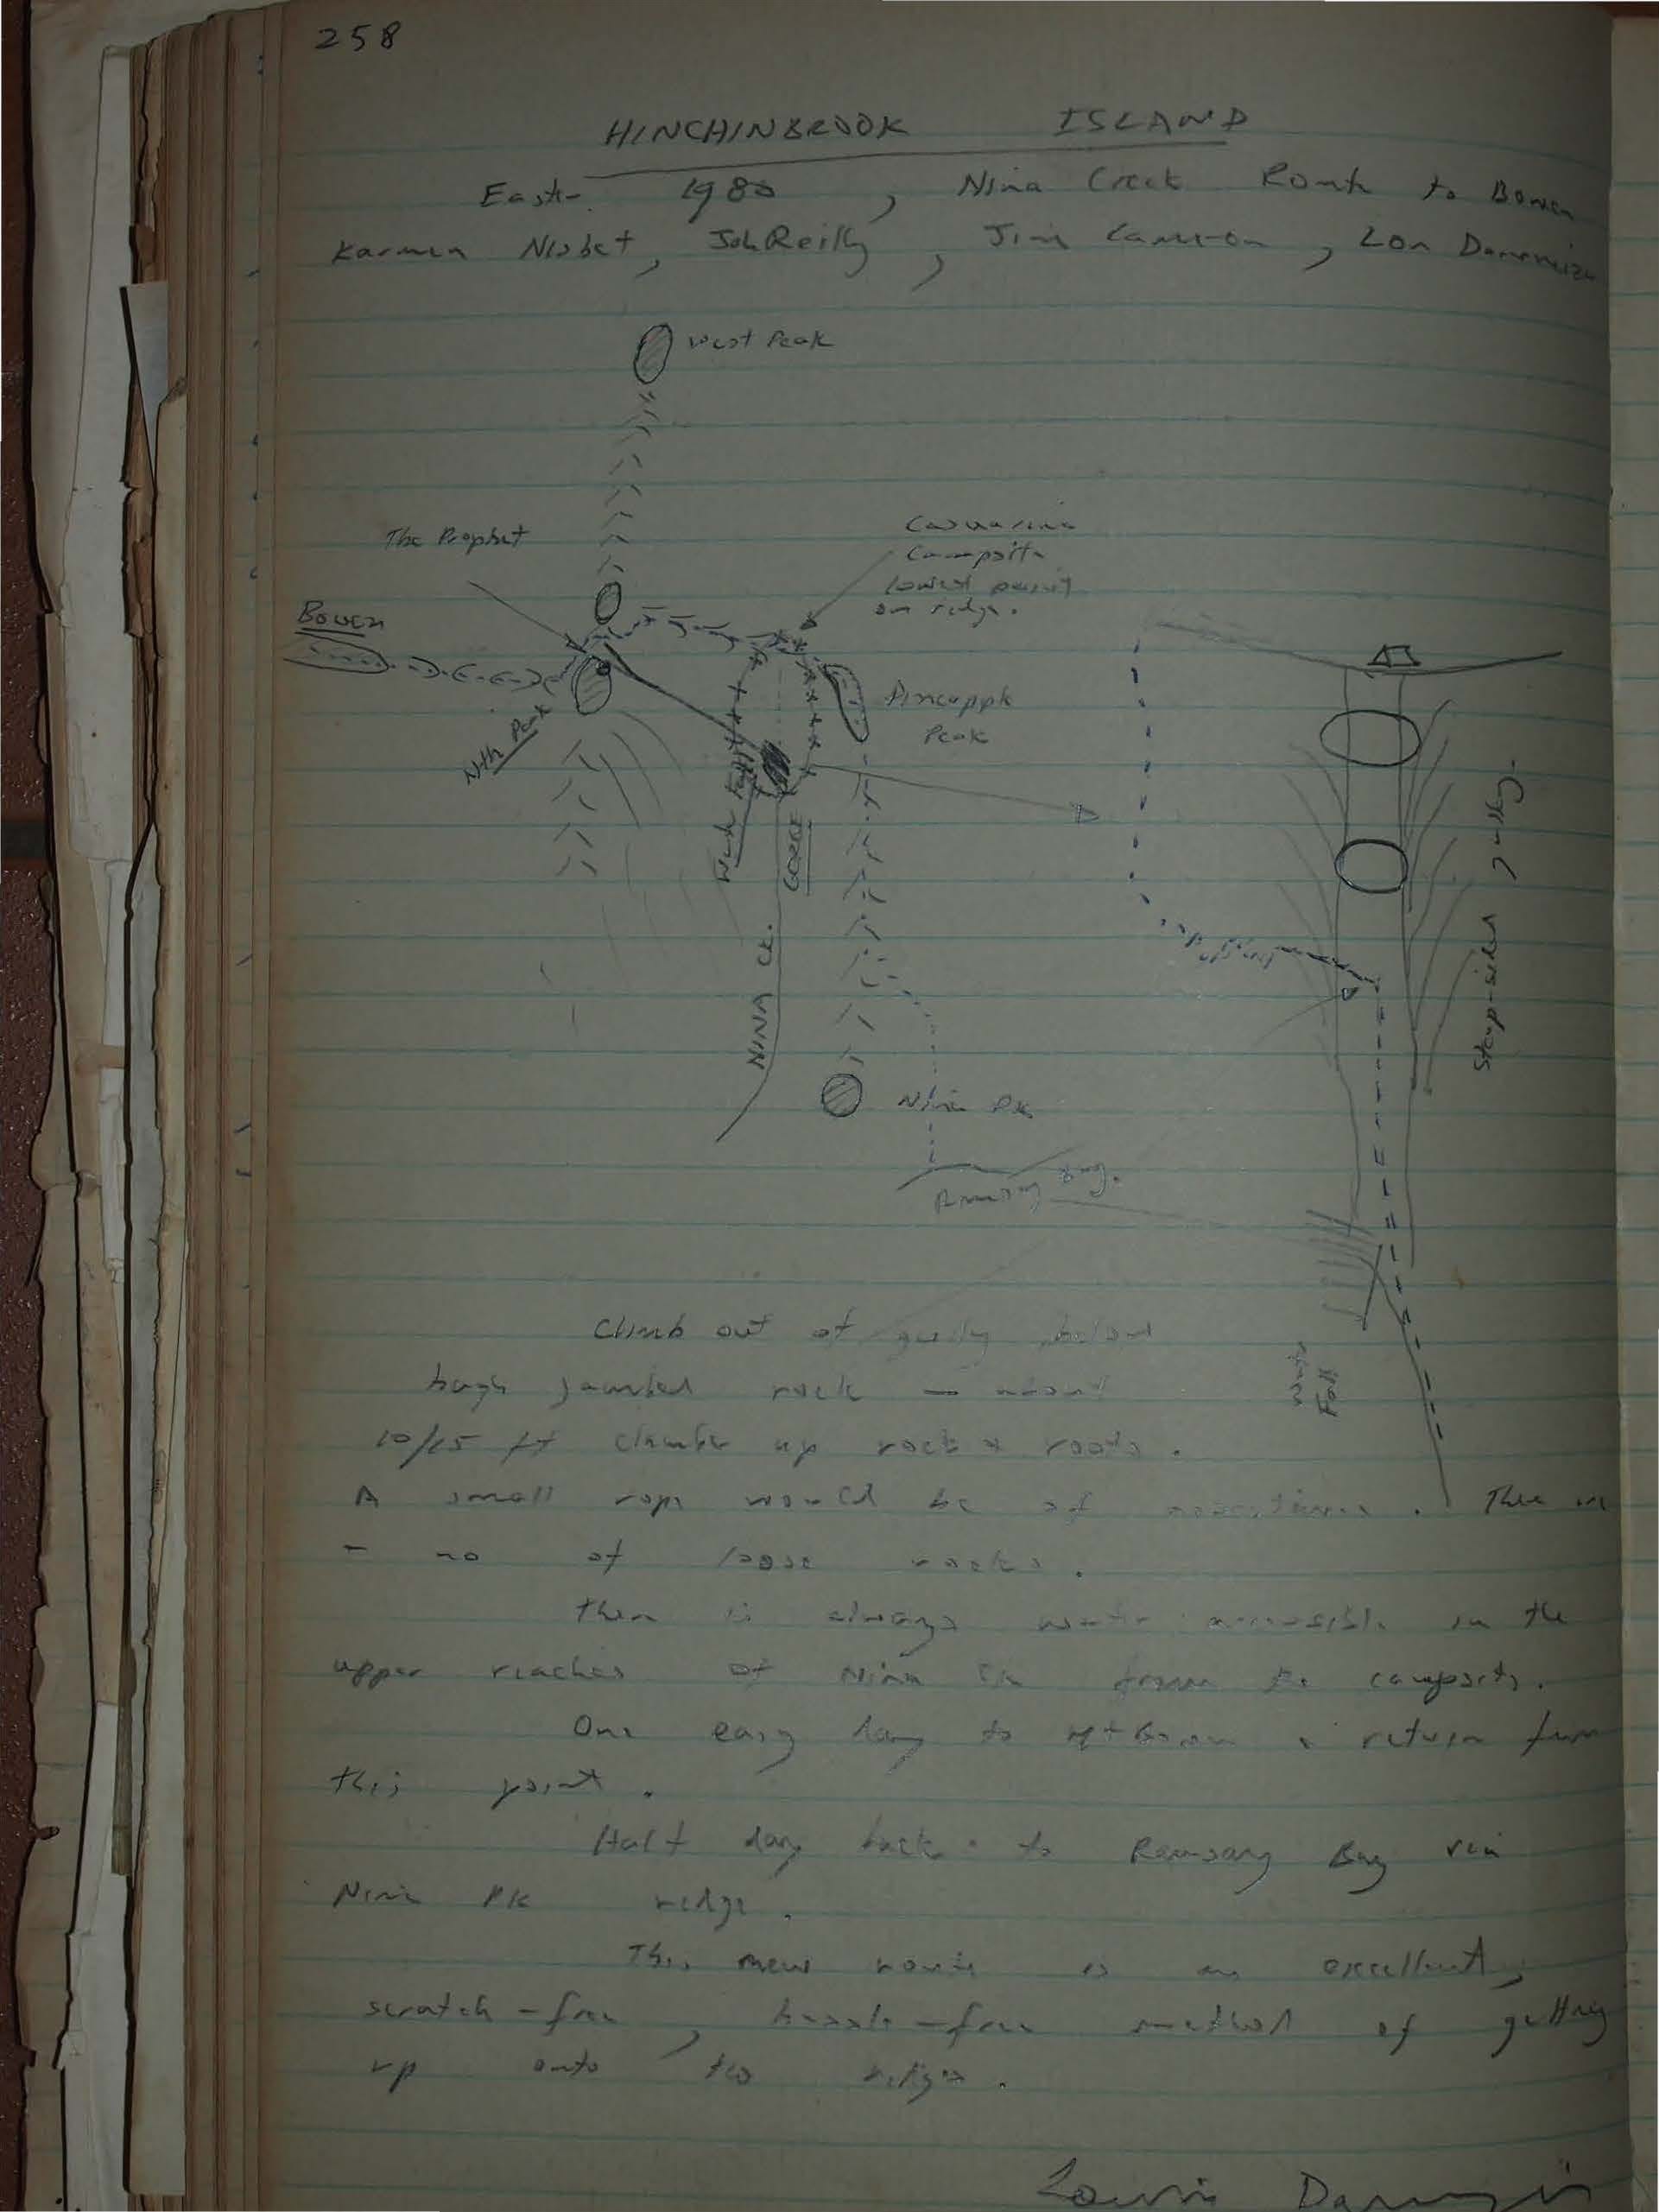 258
HINCHINBROOK ISLAND
East. 1980, Nina Creek Route to Bowen
Karmen Nisbet, Joh Reilly, Jim Cameron, Lou
West Peak
The Prophet
Casuarina
Campsite
lowest point
on ridge.
Bowen
Nth Peak
Pineapple
Peak
GORGE
Steep-sided gully.
NINA CK.
Nina Pk
Ramsay Bay.
Water
Fall
Climb out of gully below
hugh jambed rock — about
10/15 ft clamber up rock & roots.
A small rope would be of assistance. There are
- no of loose rocks.
There is always water accessible in the
upper reaches of Nina Ck from the campsite.
One easy day to Mt Bowen & return from
this point.
Half day back to Ramsay Bay via
Nina Pk ridge.
This new route is an excellent,
scratch-free, hassle-free method of getting
up onto the ridges.